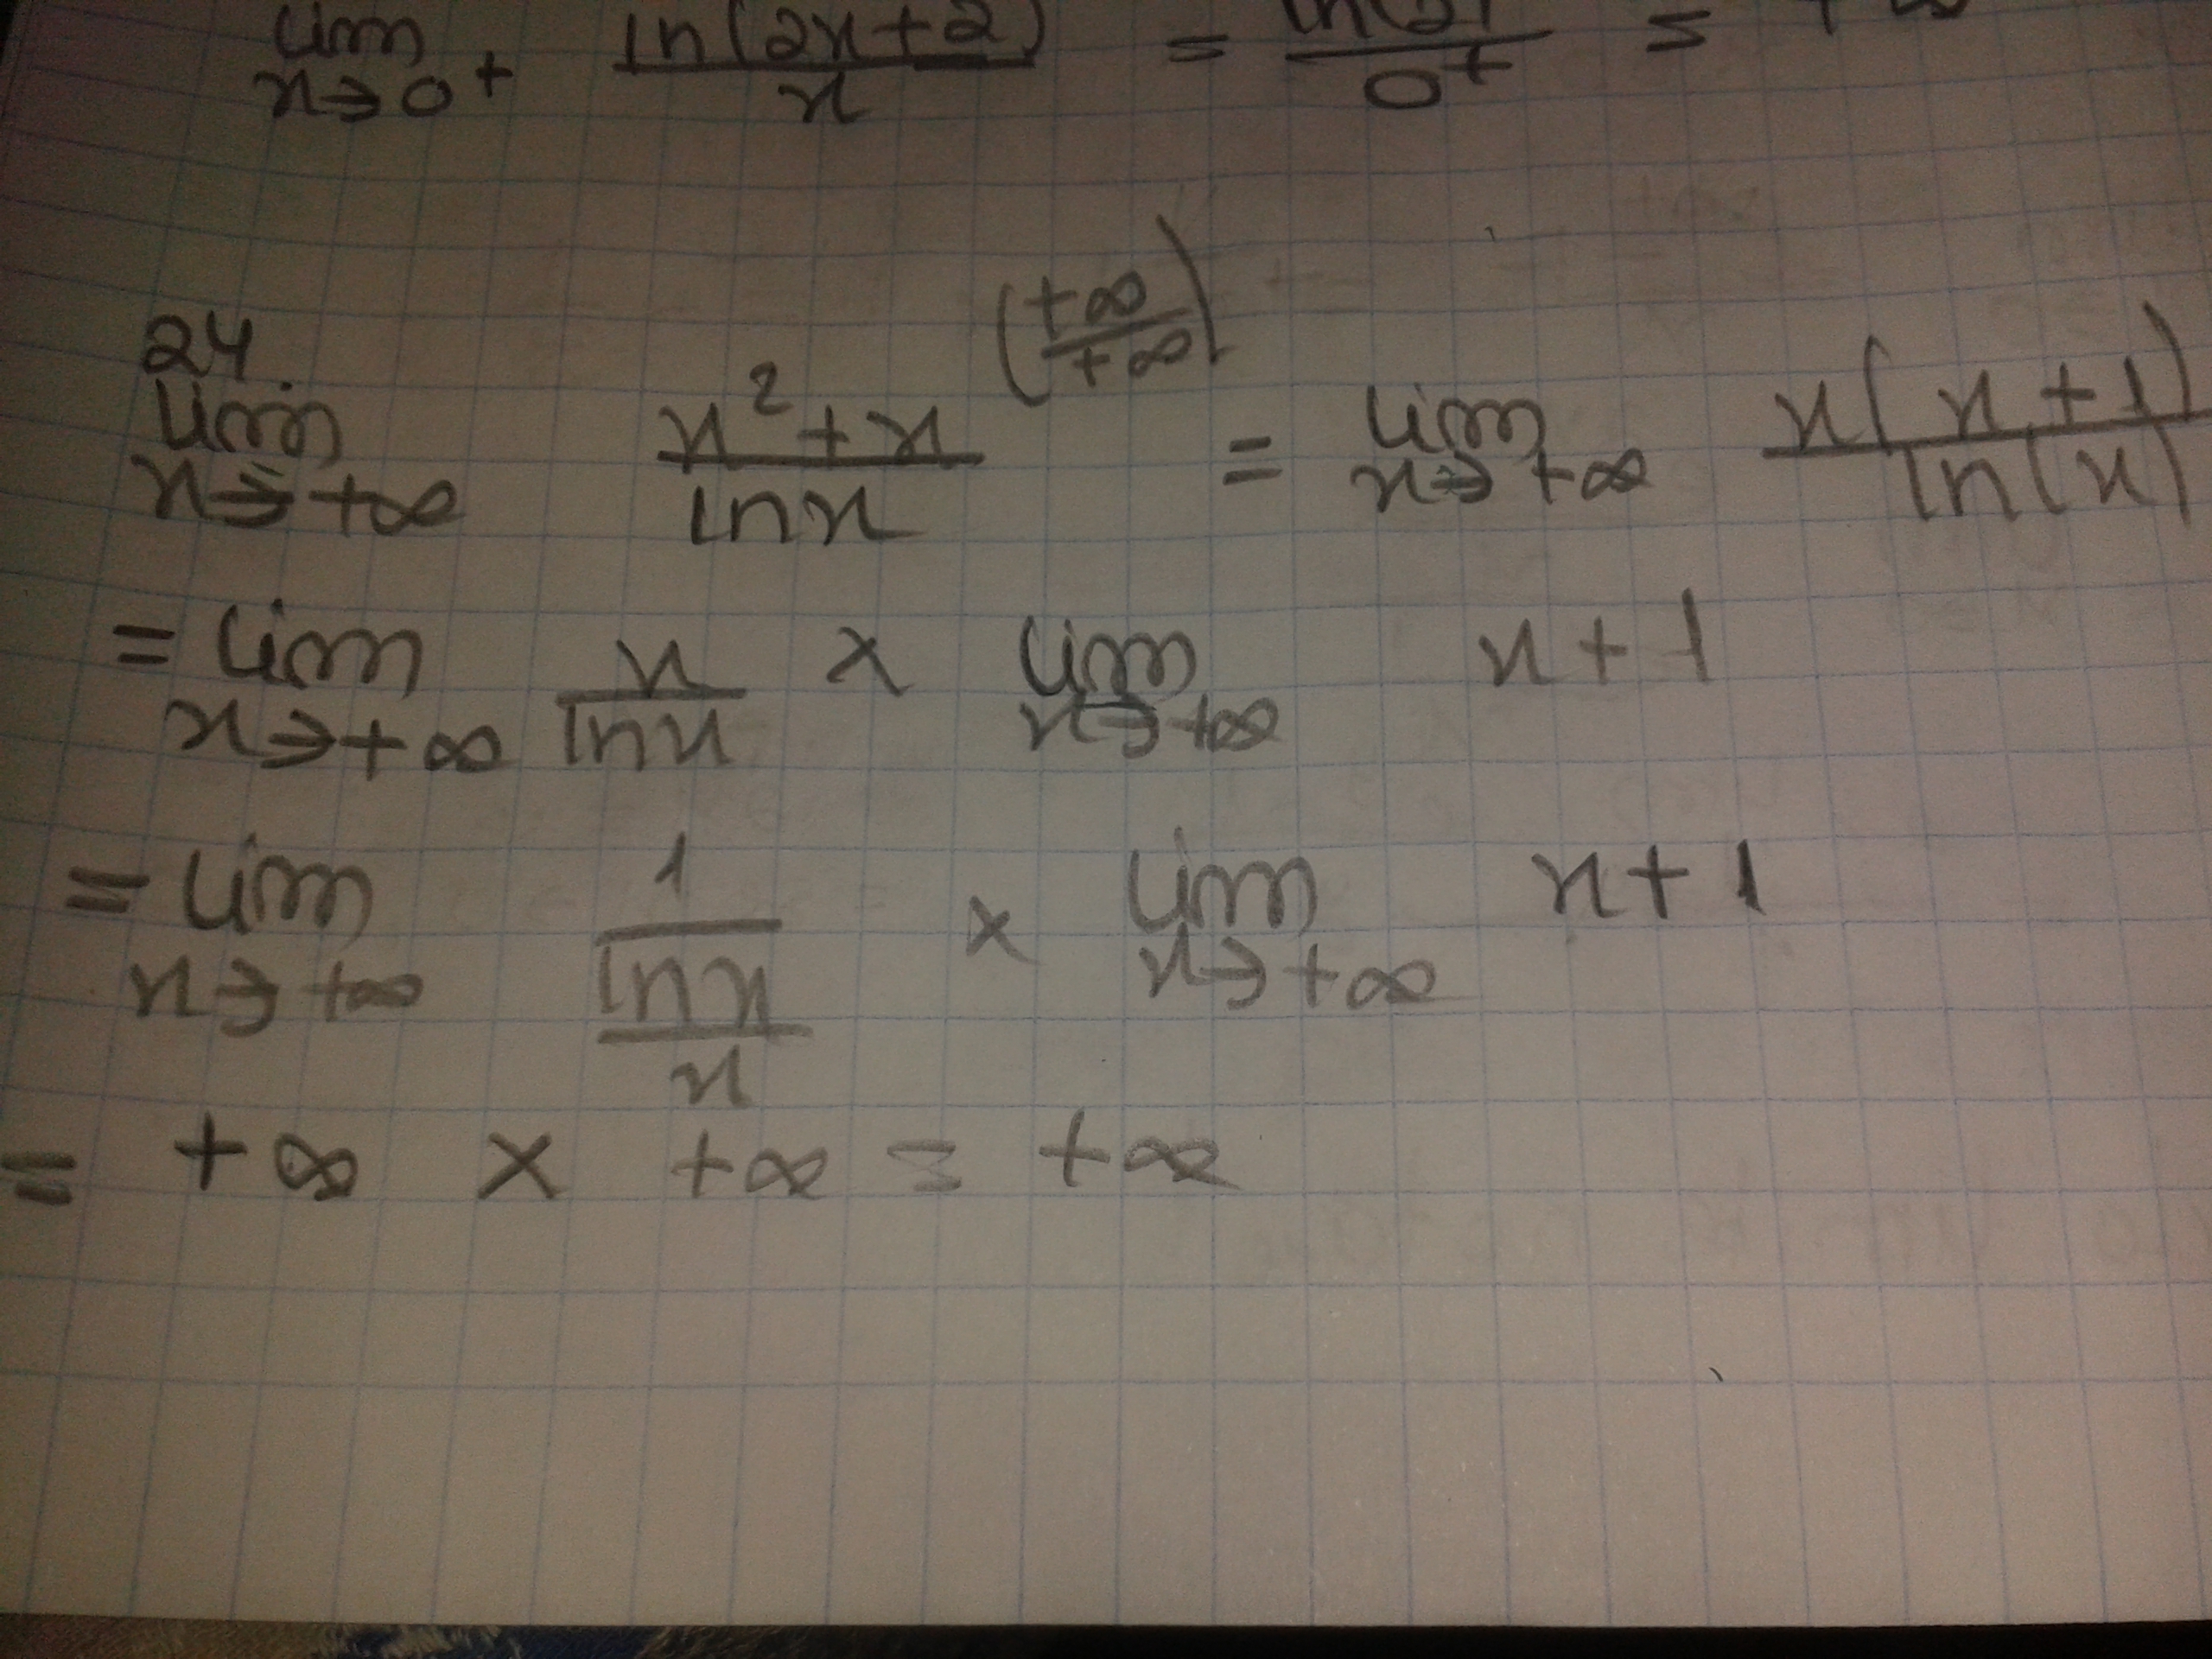 lim x→0+ ln(2x+2)/x = ln(2)/0+ = +∞
24
lim x→+∞ (x²+x)/lnx (+∞/+∞) = lim x→+∞ x(x+1)/ln(x)
= lim x→+∞ x/lnx × lim x→+∞ x+1
= lim x→+∞ 1/(lnx/x) × lim x→+∞ x+1
= +∞ × +∞ = +∞